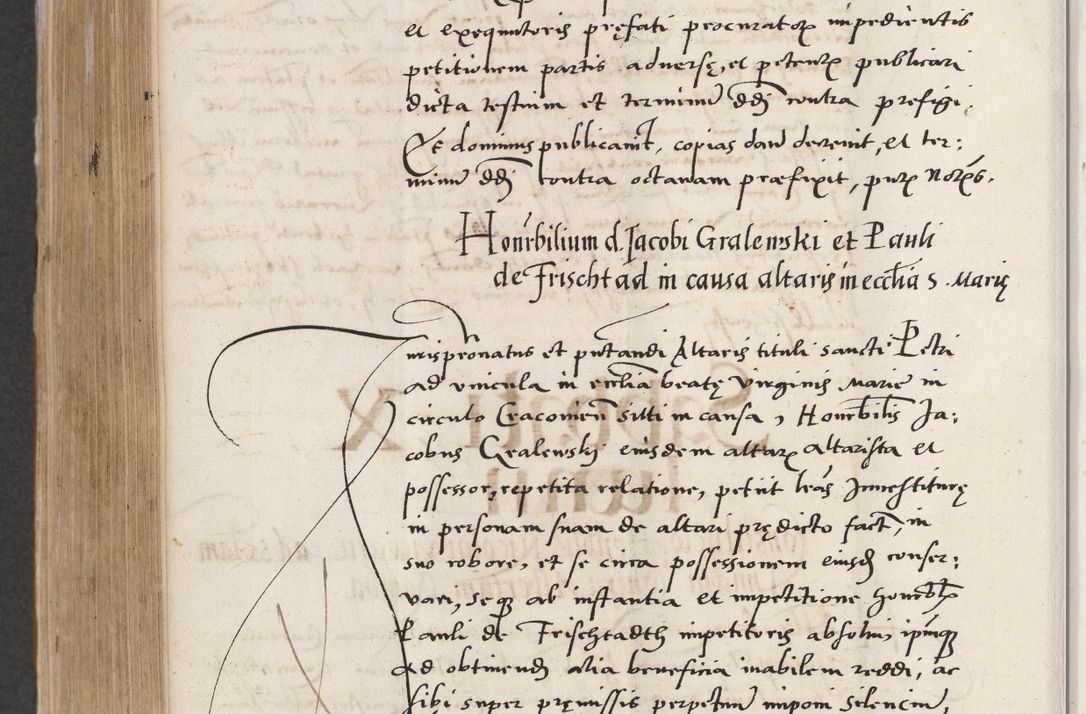 et exequutoris pręfati procuratorꝝ impedientis
petitionem partis adversę, et petentꝝ publicari
dicta testium et terminū ddī contra prefigi.
Et dominus publicavit, copias dari decrevit, et ter:
minū ddī contra octavam præfixit, putꝝ notꝝs.
Honrbilium d. Jacobi Gralewski et Pauli
de Frischtad in causa altaris in ecclīa S. Marię
Jurispronatus et putandi Altaris tituli sancti Petri
ad vincula in ecclīa beatę virginis Marie in
circulo Cracovieñ sitti in causa, Honrbilis Ja:
cobus Gralewskj eiusdem altarꝝ altarista et
possessor, repetita relatione, petiit lrās Jnvestiturę
in personam suam de altari prędicto fact, in
suo robore, et se circa possessionem eiusd conser:
vari, seq ab instantia et impetitione honrblꝝ
Pauli de Frischtadth impetitoris absolvi, ipūmq
ad obtinend alia beneficia inabilem reddi, ac
sibi super pręmissis perpetuū imponi silenciū,